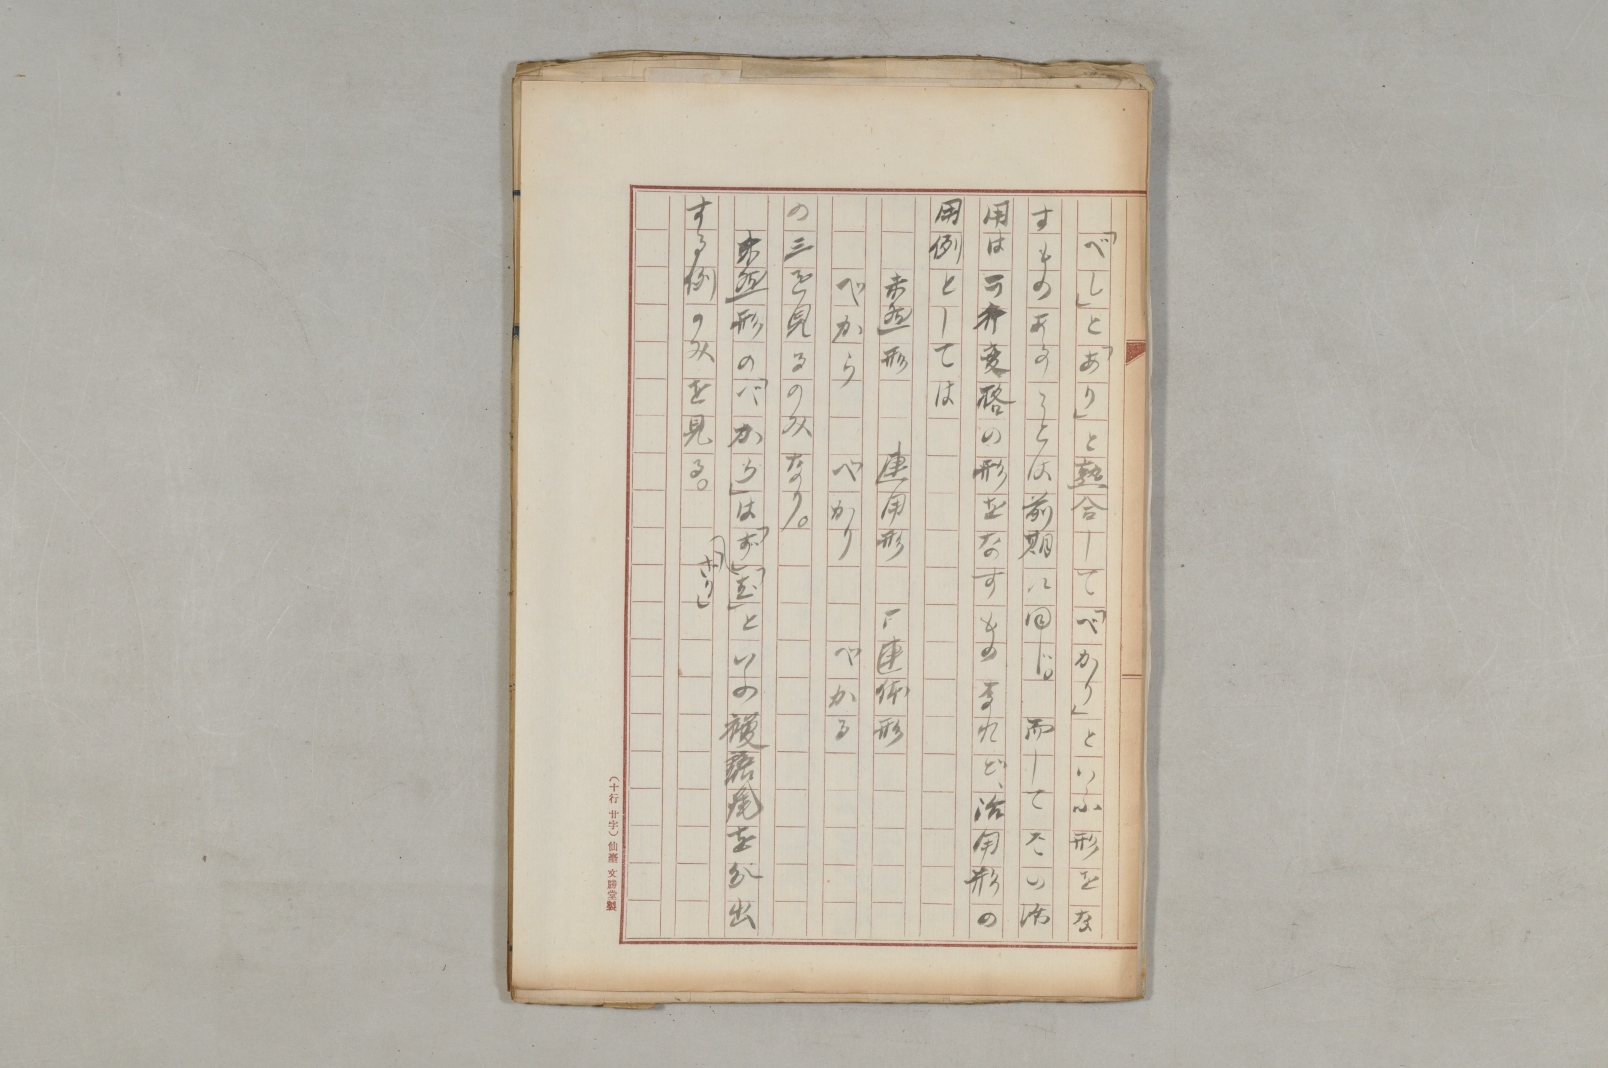 「べし」と「あり」と熟合して「べかり」といふ形をな
すものあることは前期に同じ。而してその活
用は可変格の形をなすものなれど、活用形の
用例としては
未然形　連用形　連体形
べから　べかり　べかる
の三を見るのみなり。
未然形の「べから」は「ず」「ざり」といふ複語尾を分出
する例のみを見る。
「さり」
(十行 廿字) 仙臺 文勝堂製